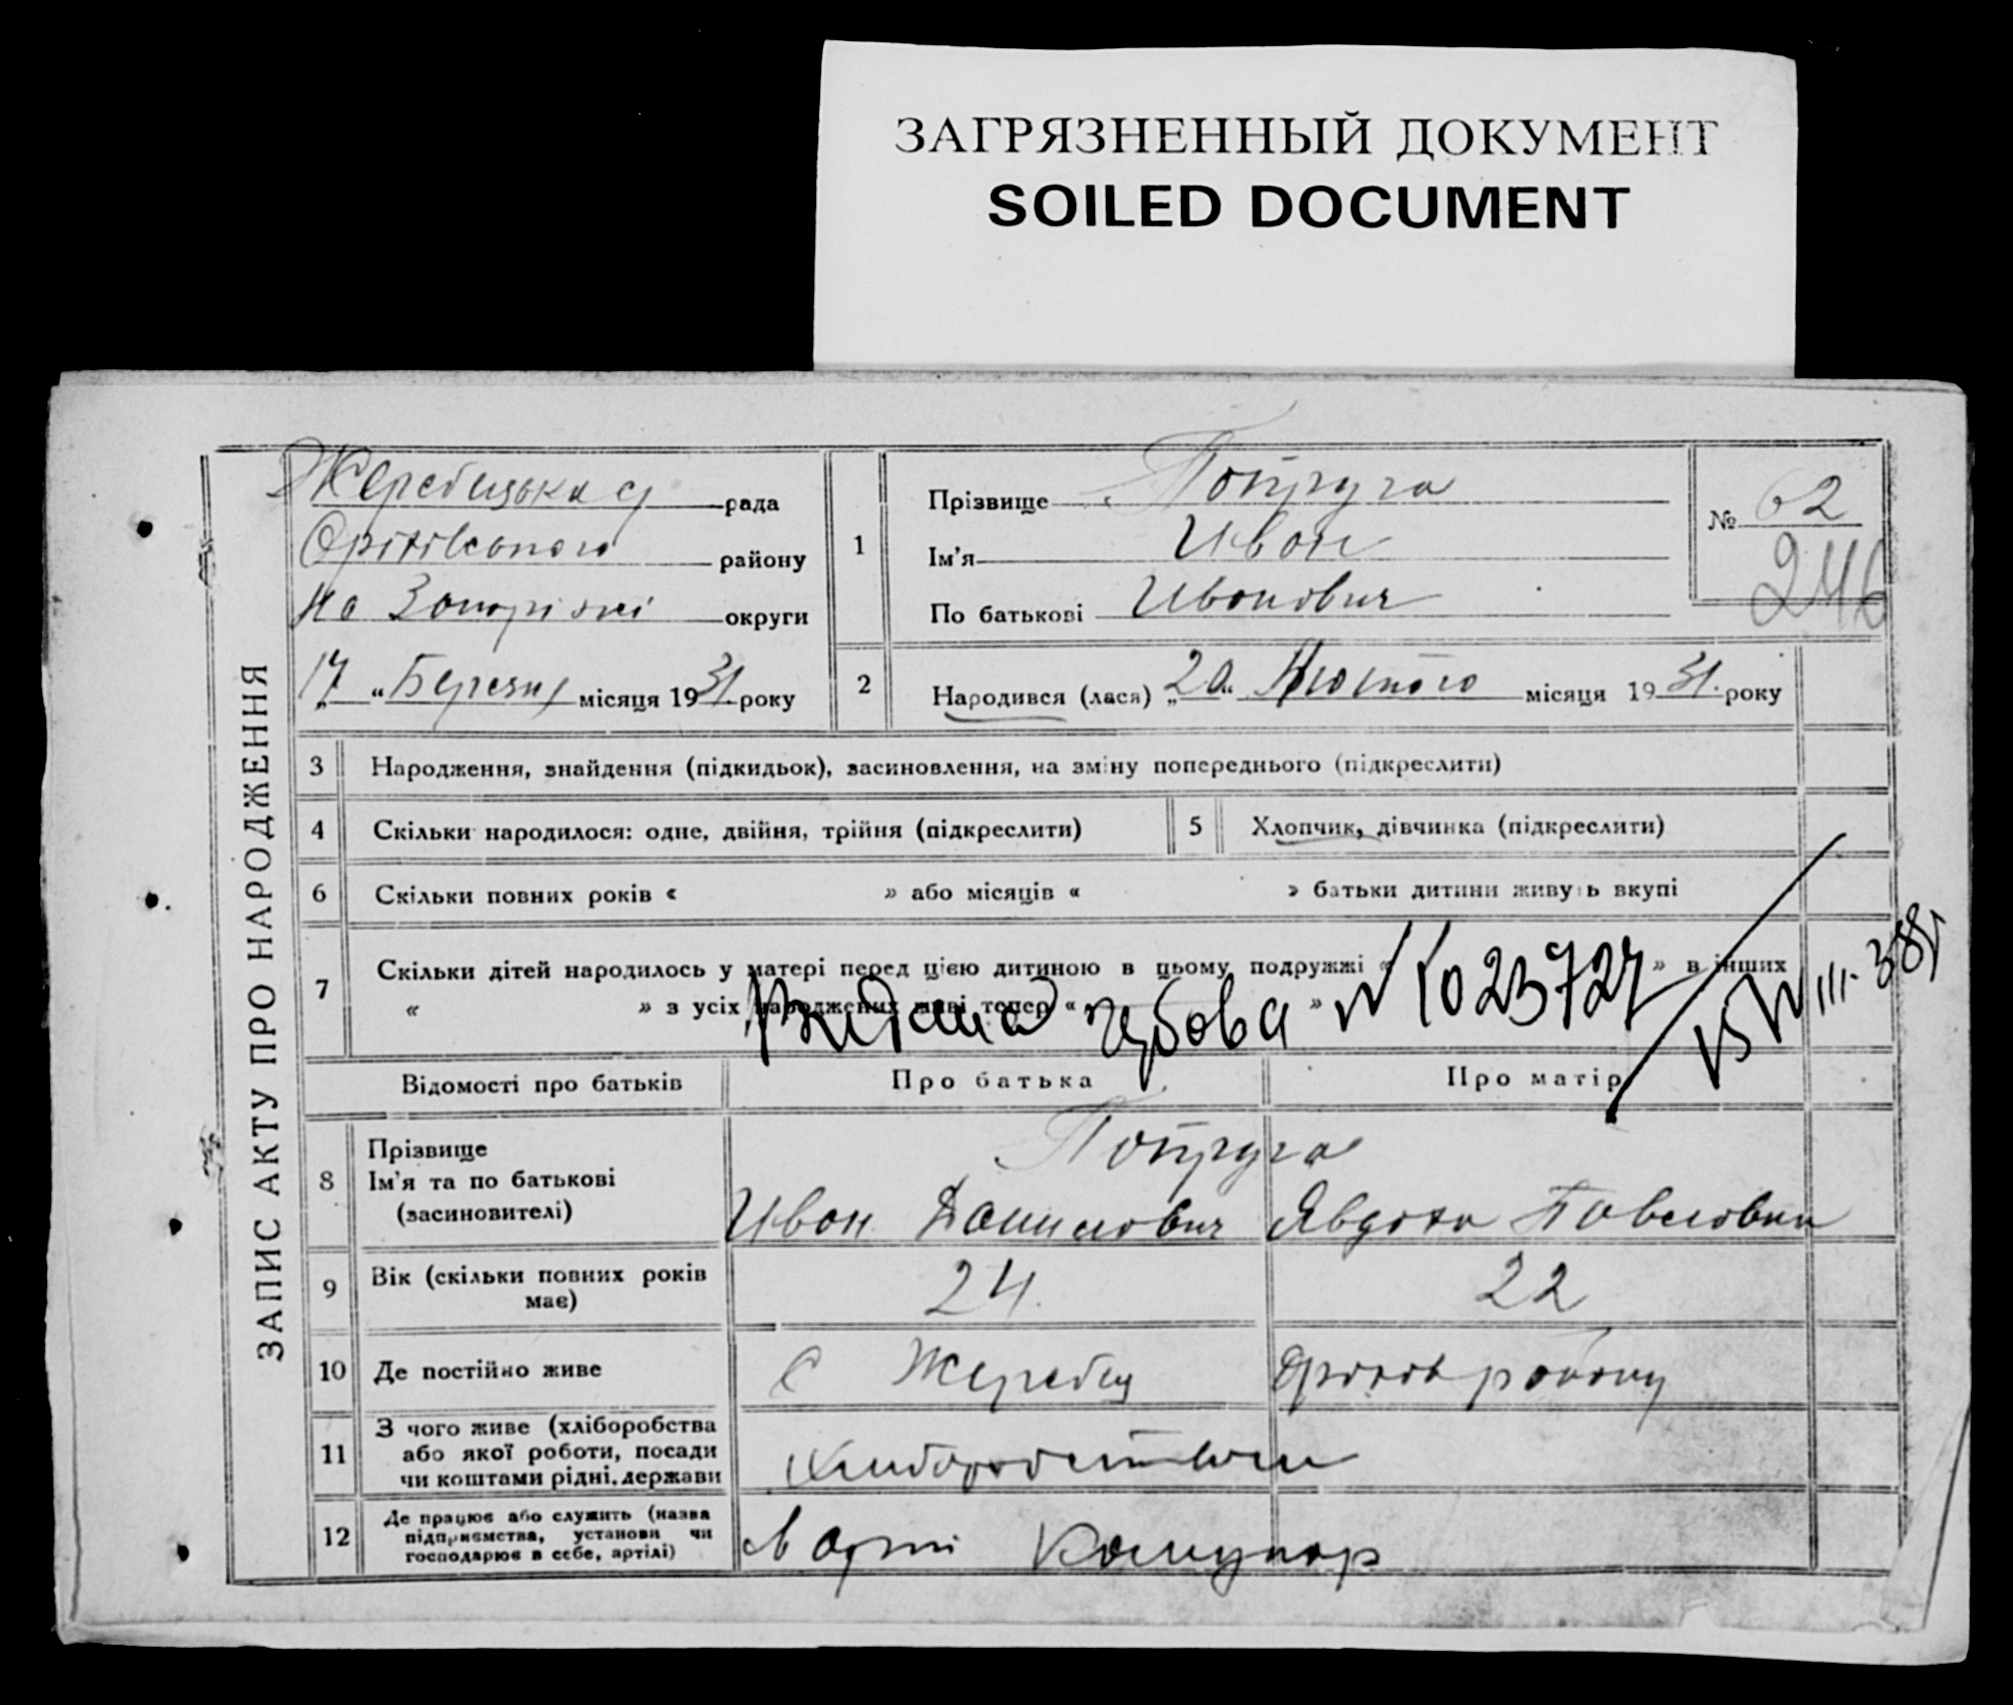 ЗАГРЯЗНЕННЫЙ ДОКУМЕНТ
SOILED DOCUMENT
ЗАПИС АКТУ ПРО НАРОДЖЕННЯ
Жеребецька с/ рада
Оріхівського району
на Запоріжжі округи
„17“ Березня місяця 1931 року
1
Прізвище Попруга
Ім'я Иван
По батькові Иванович
№ 62
246
2
Народився (лася) „20“ Лютого місяця 1931. року
3 Народження, знайдення (підкидьок), засиновлення, на зміну попереднього (підкреслити)
4 Скільки народилося: одне, двійня, трійня (підкреслити)
5 Хлопчик, дівчинка (підкреслити)
6 Скільки повних років « » або місяців « » батьки дитини живуть вкупі
7 Скільки дітей народилось у матері перед цією дитиною в цьому подружжі « » в інших
« » з усіх народжених живі тепер « »
№ 1023727
Відомості про батьків
Про батька
Про матір
8 Прізвище
Ім'я та по батькові
(засиновителі)
Попруга
Иван Данилович
Явдоха Павловна
9 Вік (скільки повних років
має)
24.
22
10 Де постійно живе
с Жеребец
Оріхів району
11 З чого живе (хліборобства
або якої роботи, посади
чи коштами рідні, держави
Хлиборобством
12 Де працює або служить (назва
підприємства, установи чи
господарює в себе, артілі)
в арті Комунар